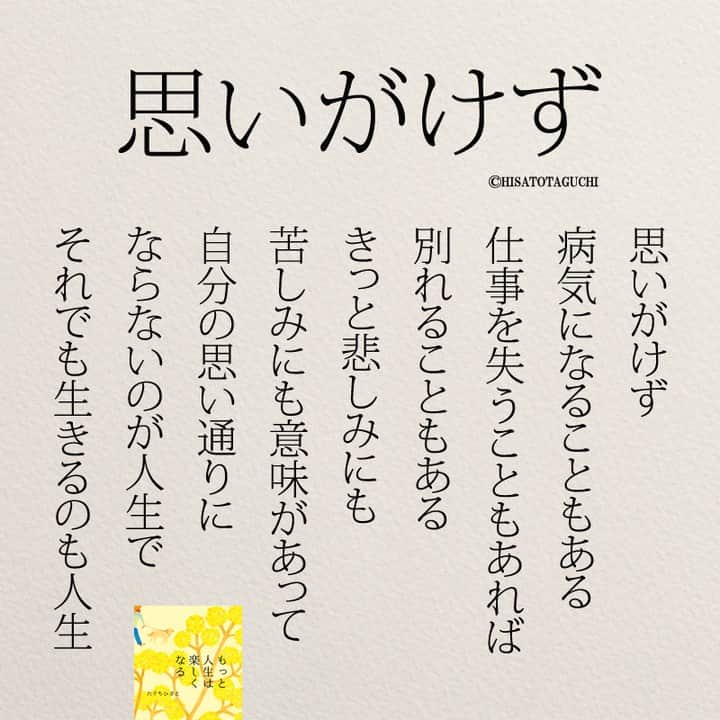 思いがけず
©HISATOTAGUCHI
思いがけず
病気になることもある
仕事を失うこともあれば
別れることもある
きっと悲しみにも
苦しみにも意味があって
自分の思い通りに
ならないのが人生で
それでも生きるのも人生
もっと
人生は
楽しく
なる
たぐちひさと